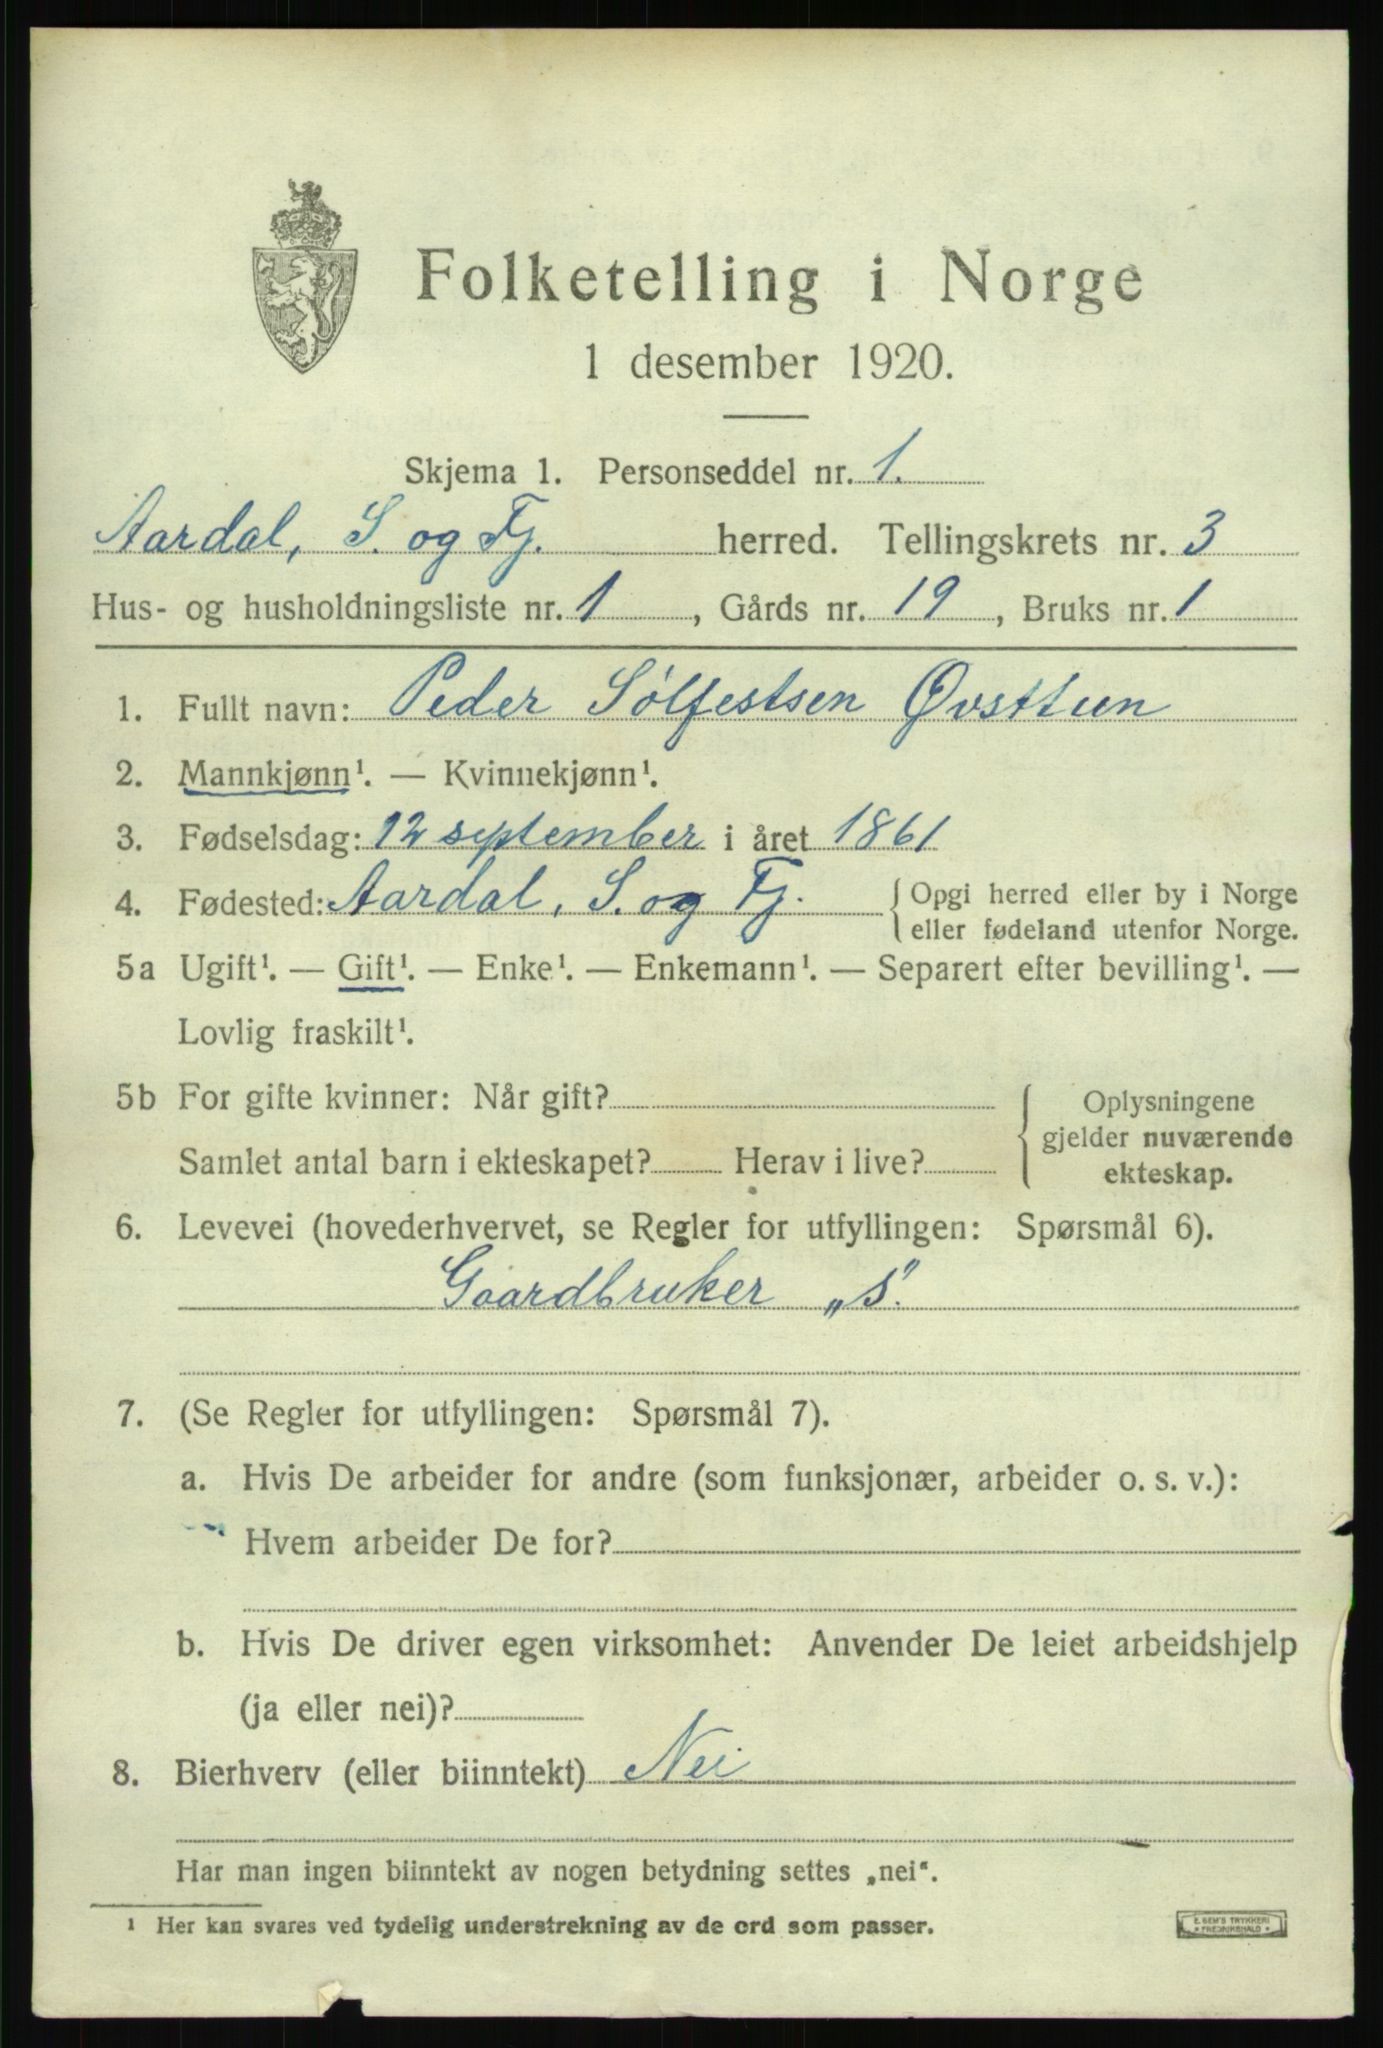 Folketelling i Norge
1 desember 1920.
Skjema 1. Personseddel nr. 1.
Aardal, S. og Fj. herred. Tellingskrets nr. 3
Hus- og husholdningsliste nr. 1, Gårds nr. 19, Bruks nr. 1
1. Fullt navn: Peder Sølfestsen Øvsttun
2. Mannkjønn¹. — Kvinnekjønn¹.
3. Fødselsdag: 12 september i året 1861
4. Fødested: Aardal, S. og Fj. { Opgi herred eller by i Norge
eller fødeland utenfor Norge.
5a Ugift¹. — Gift¹. — Enke¹. — Enkemann¹. — Separert efter bevilling¹. —
Lovlig fraskilt¹.
5b For gifte kvinner: Når gift? { Oplysningene
gjelder nuværende
Samlet antal barn i ekteskapet? Herav i live?
ekteskap.
6. Levevei (hovederhvervet, se Regler for utfyllingen: Spørsmål 6).
Gaardbruker „s".
7. (Se Regler for utfyllingen: Spørsmål 7).
a. Hvis De arbeider for andre (som funksjonær, arbeider o. s. v.):
Hvem arbeider De for?
b. Hvis De driver egen virksomhet: Anvender De leiet arbeidshjelp
(ja eller nei)?
8. Bierhverv (eller biinntekt) Nei
Har man ingen biinntekt av nogen betydning settes „nei".
¹ Her kan svares ved tydelig understrekning av de ord som passer.
E. SEM'S TRYKKERI
* FREDRIKSHALD *